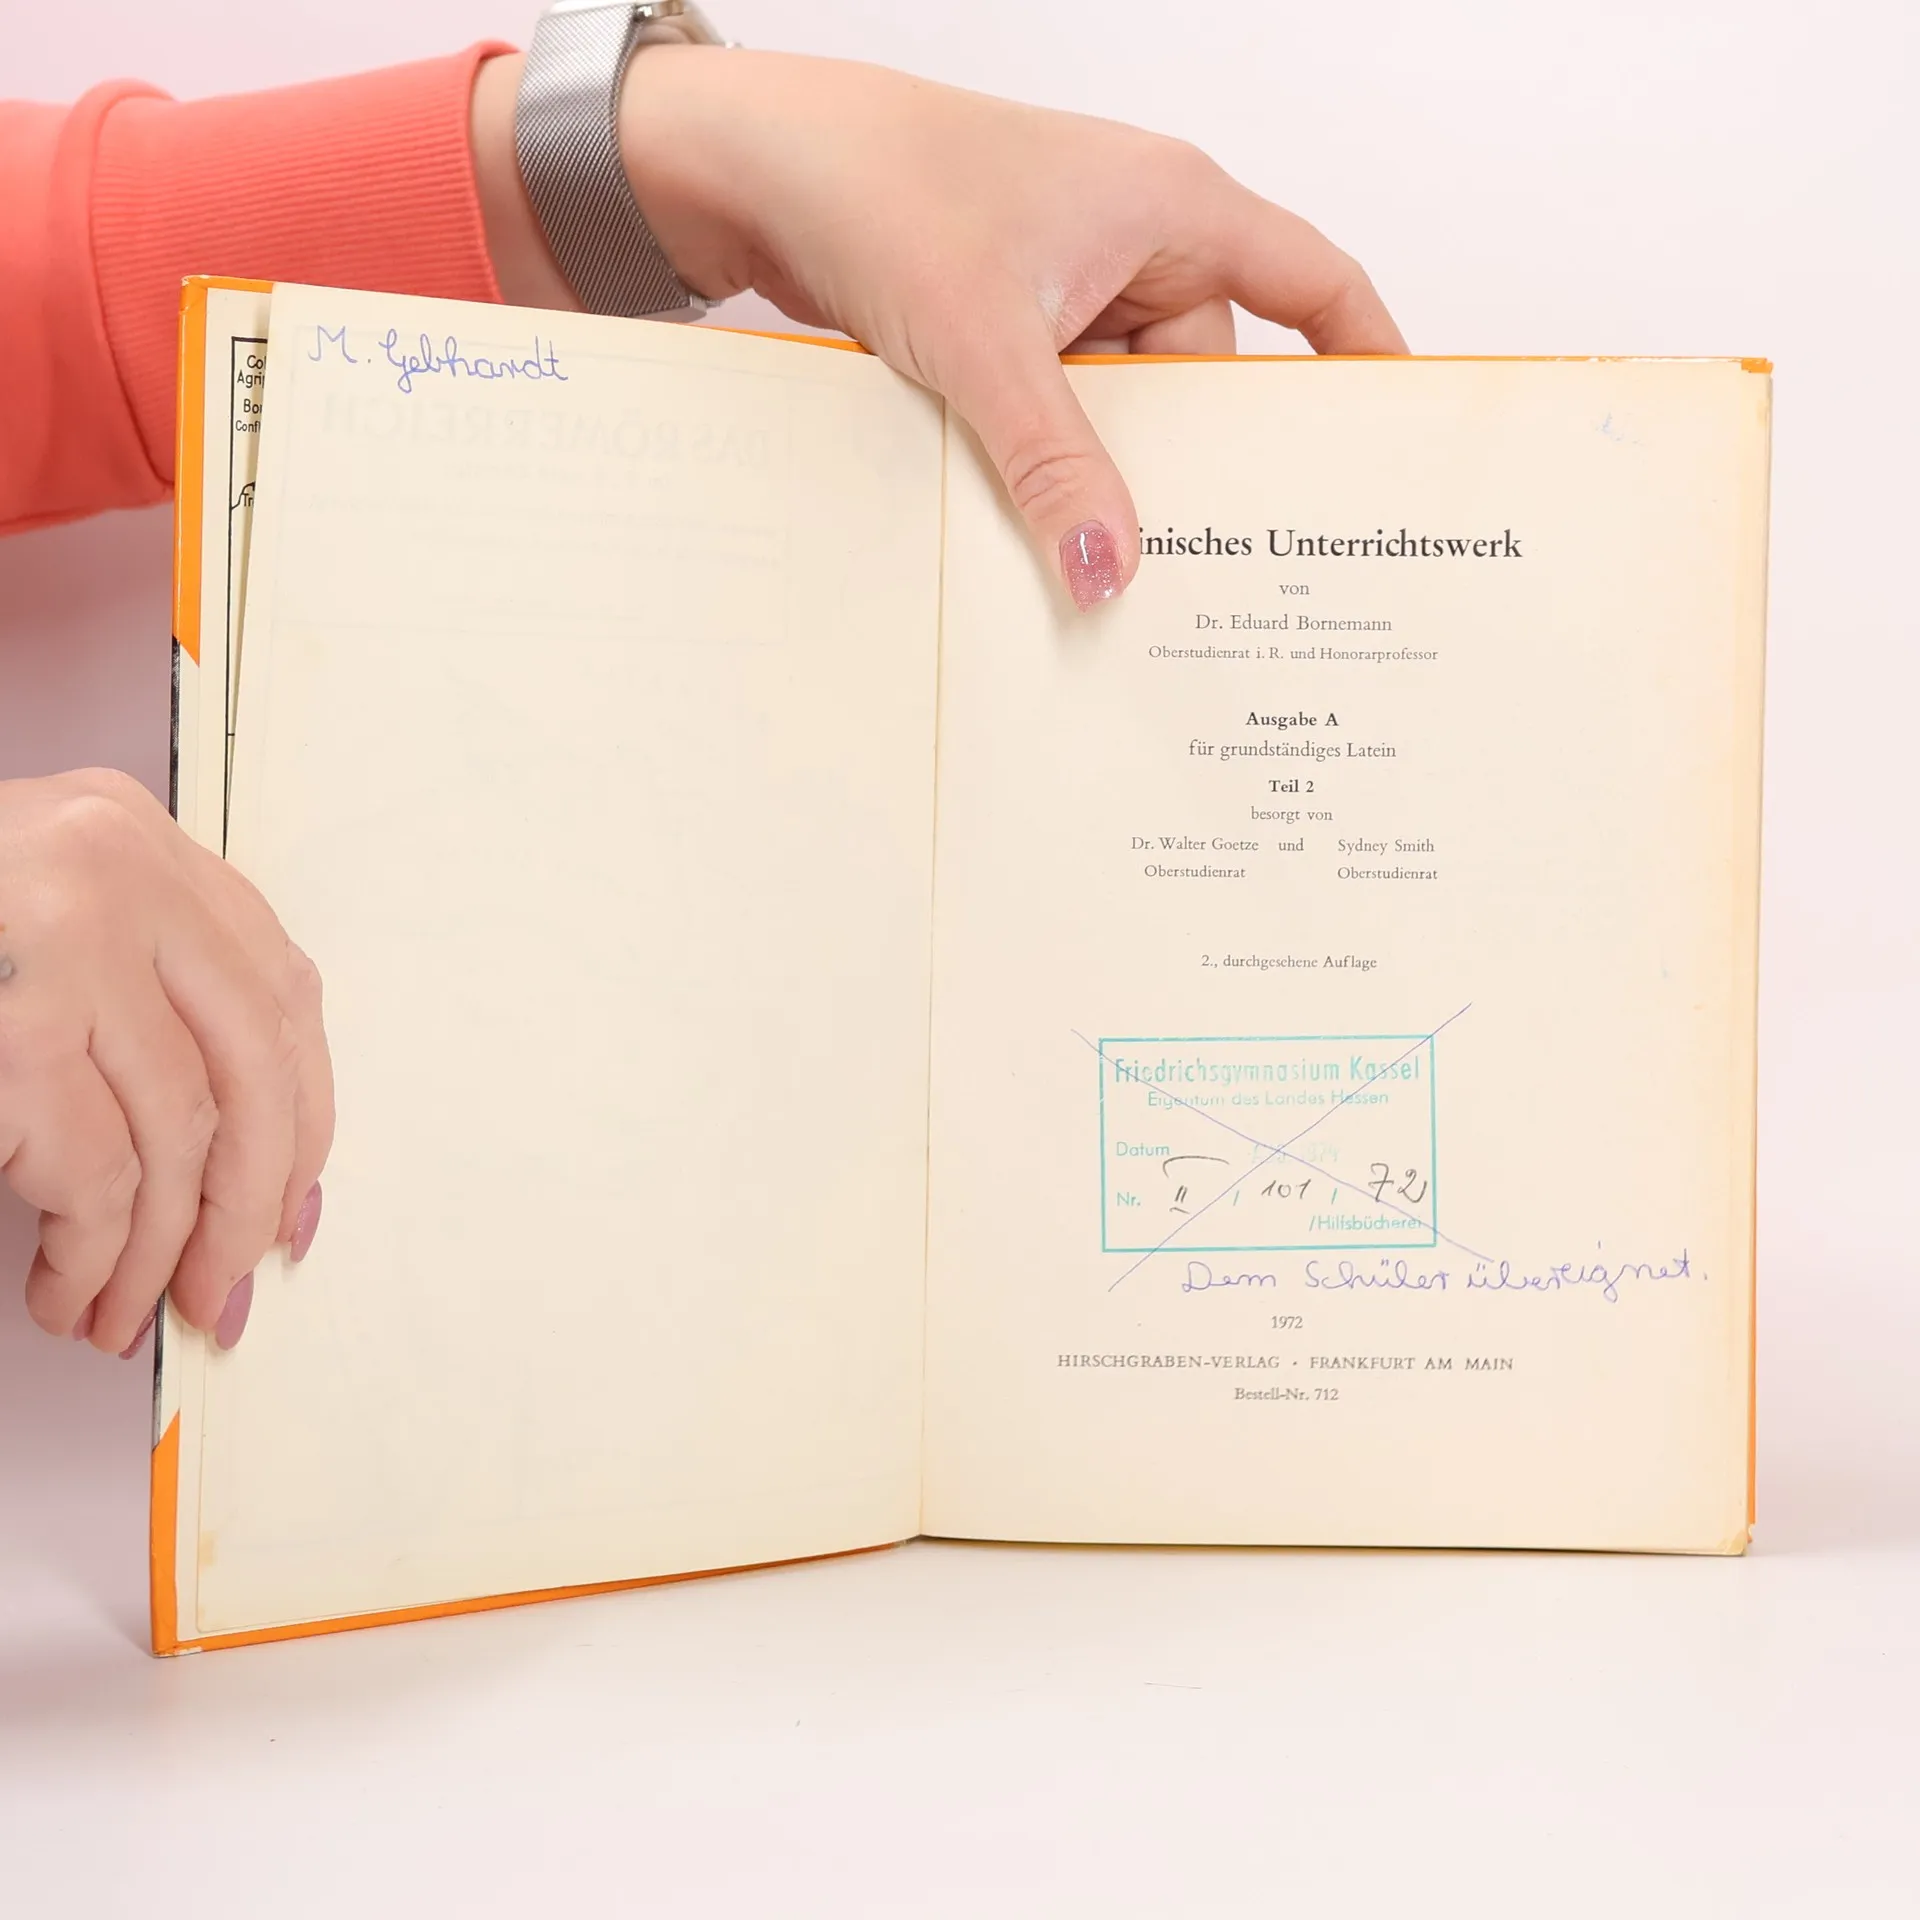 M. Gebhardt
Co
Agri
Bo
Conf
Tr
DAS RÖMERREICH
inisches Unterrichtswerk
von
Dr. Eduard Bornemann
Oberstudienrat i. R. und Honorarprofessor
Ausgabe A
für grundständiges Latein
Teil 2
besorgt von
Dr. Walter Goetze und Sydney Smith
Oberstudienrat Oberstudienrat
2., durchgesehene Auflage
Friedrichsgymnasium Kassel
Eigentum des Landes Hessen
Datum 1974
Nr. II / 101 / 72
/Hilfsbücherei
Dem Schüler übereignet.
1972
HIRSCHGRABEN-VERLAG · FRANKFURT AM MAIN
Bestell-Nr. 712